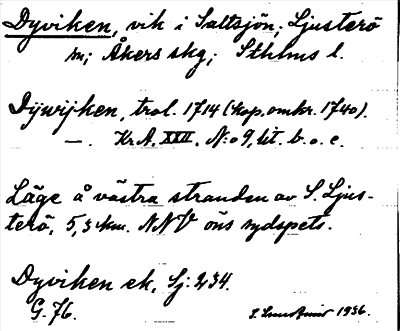 Dyviken, vik i Saltsjön; Ljusterö
sn; Åkers skg; Sthlms l.
Dÿwijken, trol. 1714 (kop. omkr. 1740).
—. KrA. XXII. N:o 9, lit. b. o. c.
Läge å västra stranden av S. Ljus-
terö, 5,3 km. NNV öns sydspets.
Dyviken ek, Sj: 234.
G. 76.
1936.